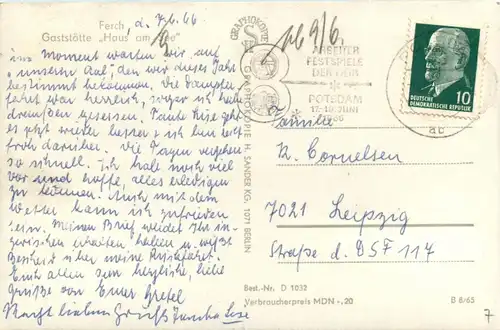 Ferch d. 7.6.66
Gaststätte „Haus am See"
im moment warten wir auf
unsern Aal, den wir dieses Jahr
bestimmt bekommen. Die Dampfer-
fahrt war herrlich, sogar ich habe
draußen gesessen. Tante Lise geht
es jetzt wieder besser & ich bin sehr
froh darüber. Die Tage vergehen
so schnell. Ich habe noch viel
vor und hoffe, alles erledigen
zu können. Auch mit dem
Wetter kann ich zufrieden
sein. Meinen Brief werdet Ihr in-
zwischen erhalten haben u. wißt
Bescheid über meine Rückfahrt.
Euch allen sehr herzliche, liebe
Grüße von Eurer
lieben Tante Lise
GRAPHOKOPIE
GRAPHOKOPIE H. SANDER KG. 1071 BERLIN
9/6.
ARBEITER
FESTSPIELE
DER DDR
POTSDAM
17.-19. JUNI
1966
DEUTSCHE
DEMOKRATISCHE REPUBLIK
10
Familie
K. Cornelsen
7021 Leipzig
Straße d. DSF 117
Best.-Nr. D 1032
Verbraucherpreis MDN -,20
B 8/65
7